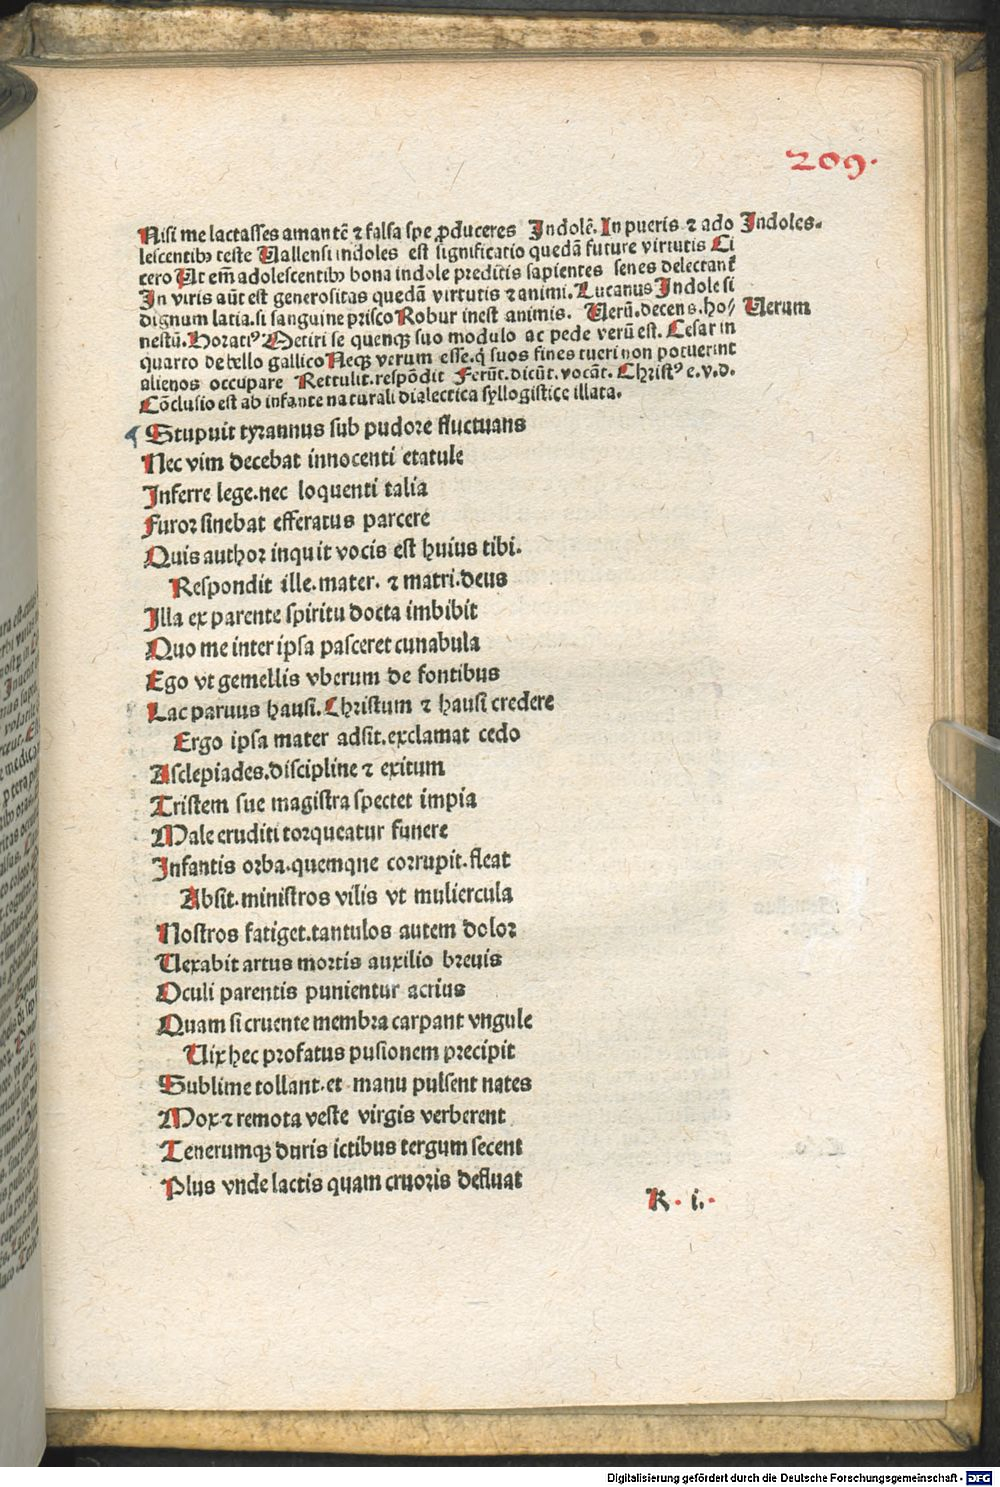 209.
Nisi me lactasses amantē ⁊ falsa spe ꝓduceres Indolē. In pueris ⁊ ado Indoles.
lescentibꝫ teste Vallensi indoles est significatio quedā future virtutis Ci
cero Ut em̄ adolescentibꝫ bona indole preditis sapientes senes delectant̄
In viris aūt est generositas quedā virtutis ⁊ animi. Lucanus Indole si
dignum latia. si sanguine prisco Robur inest animis. Verū. decens. ho⸗ Verum
nestū. Horatiꝰ Metiri se quenqꝫ suo modulo ac pede verū est. Cesar in
quarto de bello gallico Neqꝫ verum esse. q̇ suos fines tueri non potuerint
alienos occupare Rettulit. respōdit Ferūt. dicūt. vocāt. Christꝰ e. v. d.
Cōclusio est ab infante naturali dialectica syllogistice illata.
Stupuit tyrannus sub pudore fluctuans
Nec vim decebat innocenti etatule
Inferre lege. nec loquenti talia
Furor sinebat efferatus parcere
Quis author inquit vocis est huius tibi.
Respondit ille. mater. ⁊ matri. deus
Illa ex parente spiritu docta imbibit
Quo me inter ipsa pasceret cunabula
Ego vt gemellis vberum de fontibus
Lac paruus hausi. Christum ⁊ hausi credere
Ergo ipsa mater adsit. exclamat cedo
Asclepiades. discipline ⁊ exitum
Tristem sue magistra spectet impia
Male eruditi torqueatur funere
Infantis orba. quemqne corrupit. fleat
Absit. ministros vilis vt muliercula
Nostros fatiget. tantulos autem dolor
Vexabit artus mortis auxilio breuis
Oculi parentis punientur acrius
Quam si cruente membra carpant vngule
Vix hec profatus pusionem precipit
Sublime tollant. et manu pulsent nates
Mox ⁊ remota veste virgis verberent
Tenerumqꝫ duris ictibus tergum secent
Plus vnde lactis quam cruoris defluat
R. i.
Digitalisierung gefördert durch die Deutsche Forschungsgemeinschaft - DFG